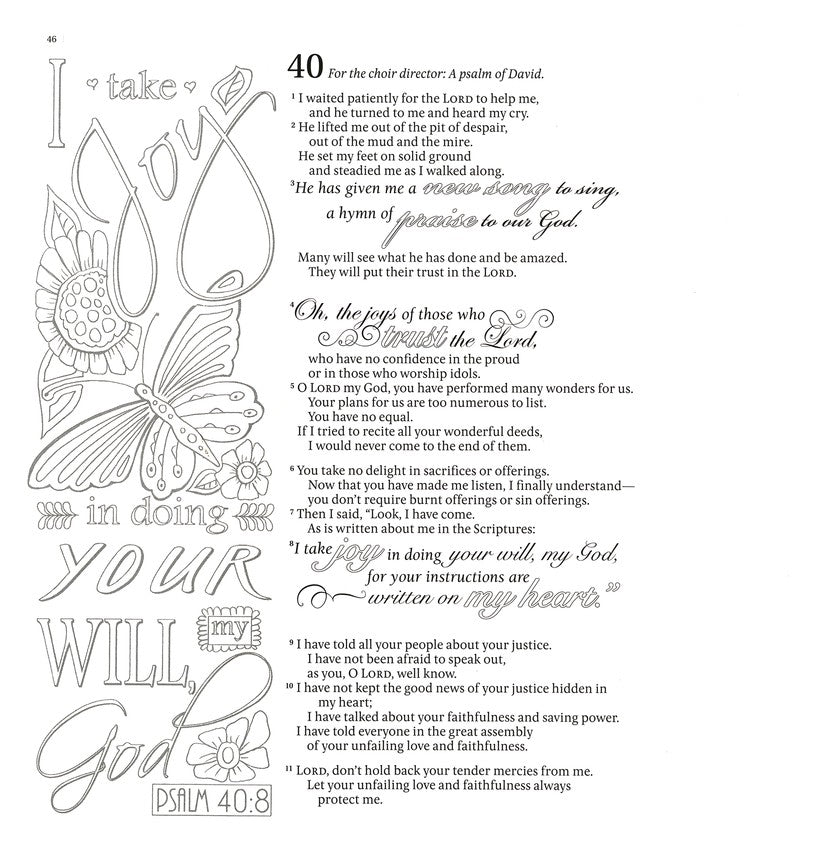 46
I take
Joy
in doing
YOUR
WILL, my
God
PSALM 40:8
40 For the choir director: A psalm of David.
1 I waited patiently for the LORD to help me,
and he turned to me and heard my cry.
2 He lifted me out of the pit of despair,
out of the mud and the mire.
He set my feet on solid ground
and steadied me as I walked along.
3 He has given me a new song to sing,
a hymn of praise to our God.
Many will see what he has done and be amazed.
They will put their trust in the LORD.
4 Oh, the joys of those who
trust the Lord,
who have no confidence in the proud
or in those who worship idols.
5 O LORD my God, you have performed many wonders for us.
Your plans for us are too numerous to list.
You have no equal.
If I tried to recite all your wonderful deeds,
I would never come to the end of them.
6 You take no delight in sacrifices or offerings.
Now that you have made me listen, I finally understand—
you don't require burnt offerings or sin offerings.
7 Then I said, “Look, I have come.
As is written about me in the Scriptures:
8 I take joy in doing your will, my God,
for your instructions are
written on my heart.”
9 I have told all your people about your justice.
I have not been afraid to speak out,
as you, O LORD, well know.
10 I have not kept the good news of your justice hidden in
my heart;
I have talked about your faithfulness and saving power.
I have told everyone in the great assembly
of your unfailing love and faithfulness.
11 LORD, don't hold back your tender mercies from me.
Let your unfailing love and faithfulness always
protect me.